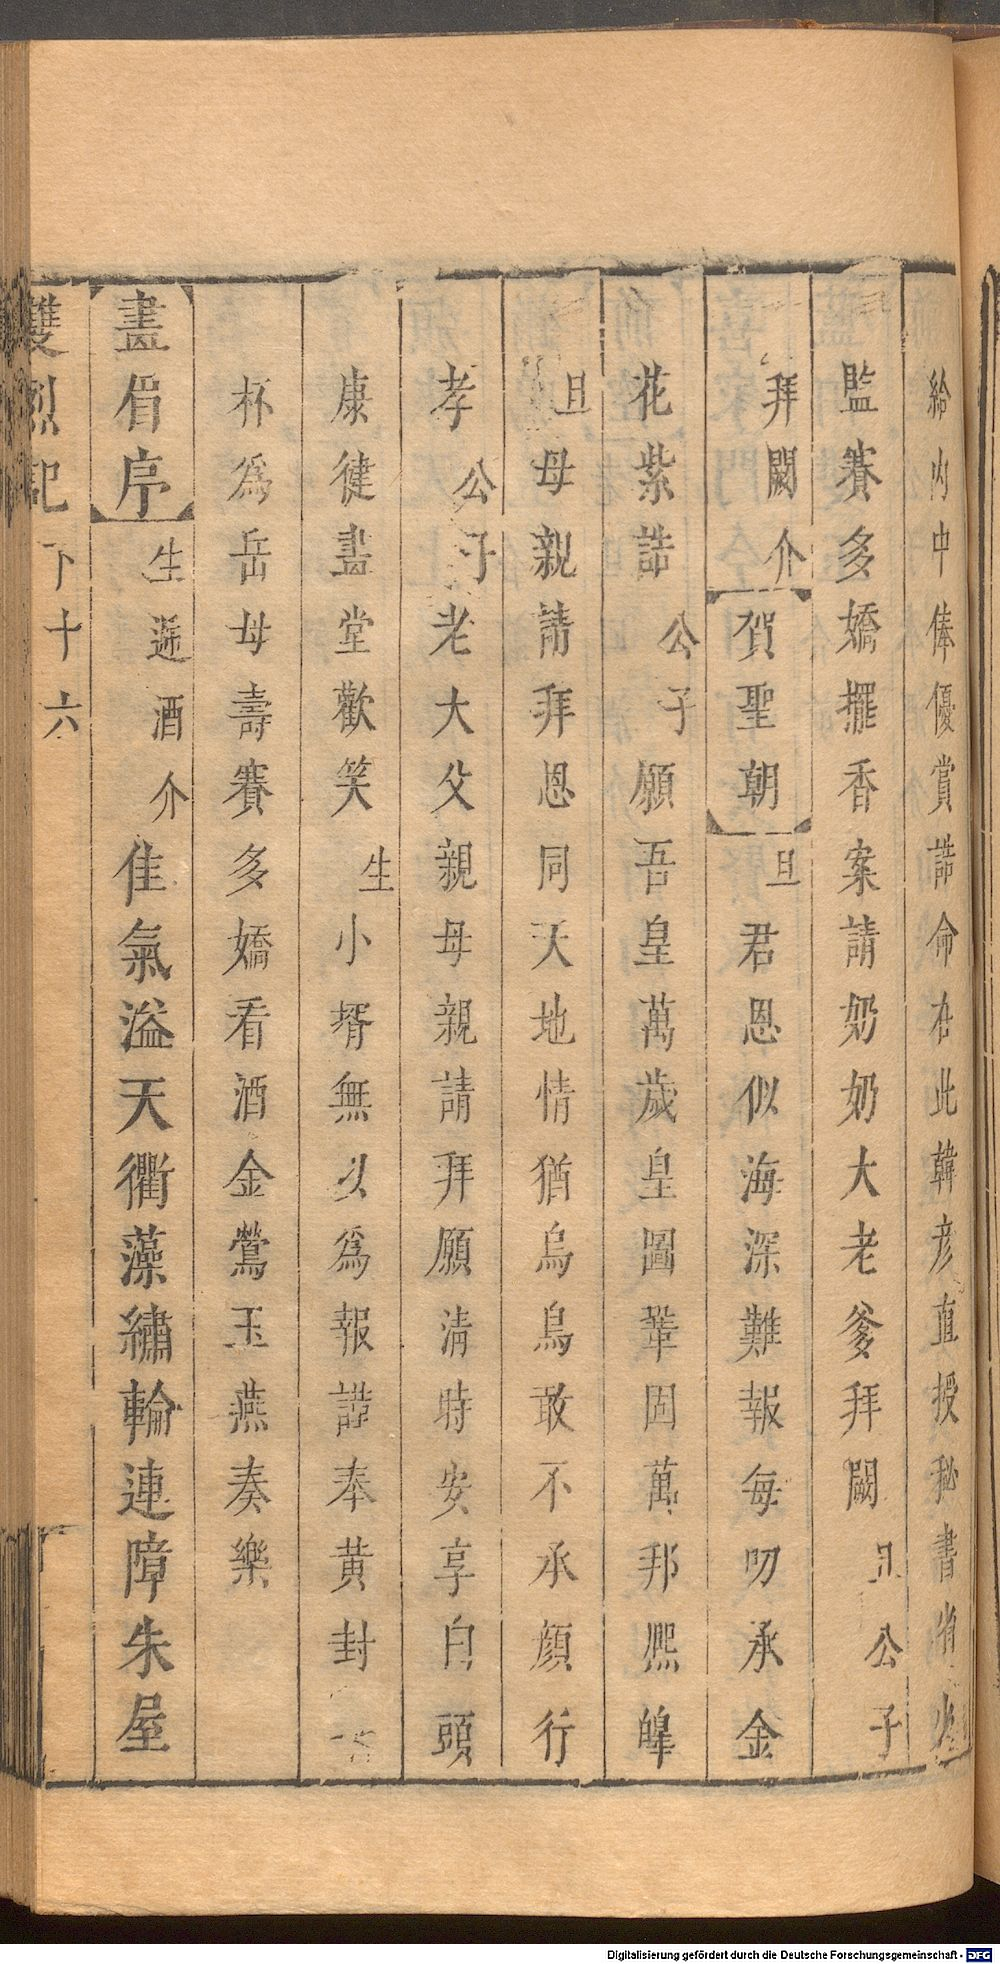 給內中俸優賞誥命在此韓彥直授秘書省少
監賽多嬌擺香案請奶奶大老爹拜闕旦公子
拜闕介賀聖朝旦君恩似海深難報每叨承金
花紫誥公子願吾皇萬歲皇圖鞏固萬邦熈皥
旦母親請拜恩同天地情猶烏鳥敢不承顔行
孝公子老大父親母親請拜願清時安享白頭
康健畫堂歡笑生小壻無以爲報謹奉黄封一
杯爲岳母壽賽多嬌看酒金鶯玉燕奏樂
畫眉序生遞酒介佳氣溢天衢藻繡輪連障朱屋
雙烈記 下十六
Digitalisierung gefördert durch die Deutsche Forschungsgemeinschaft - DFG